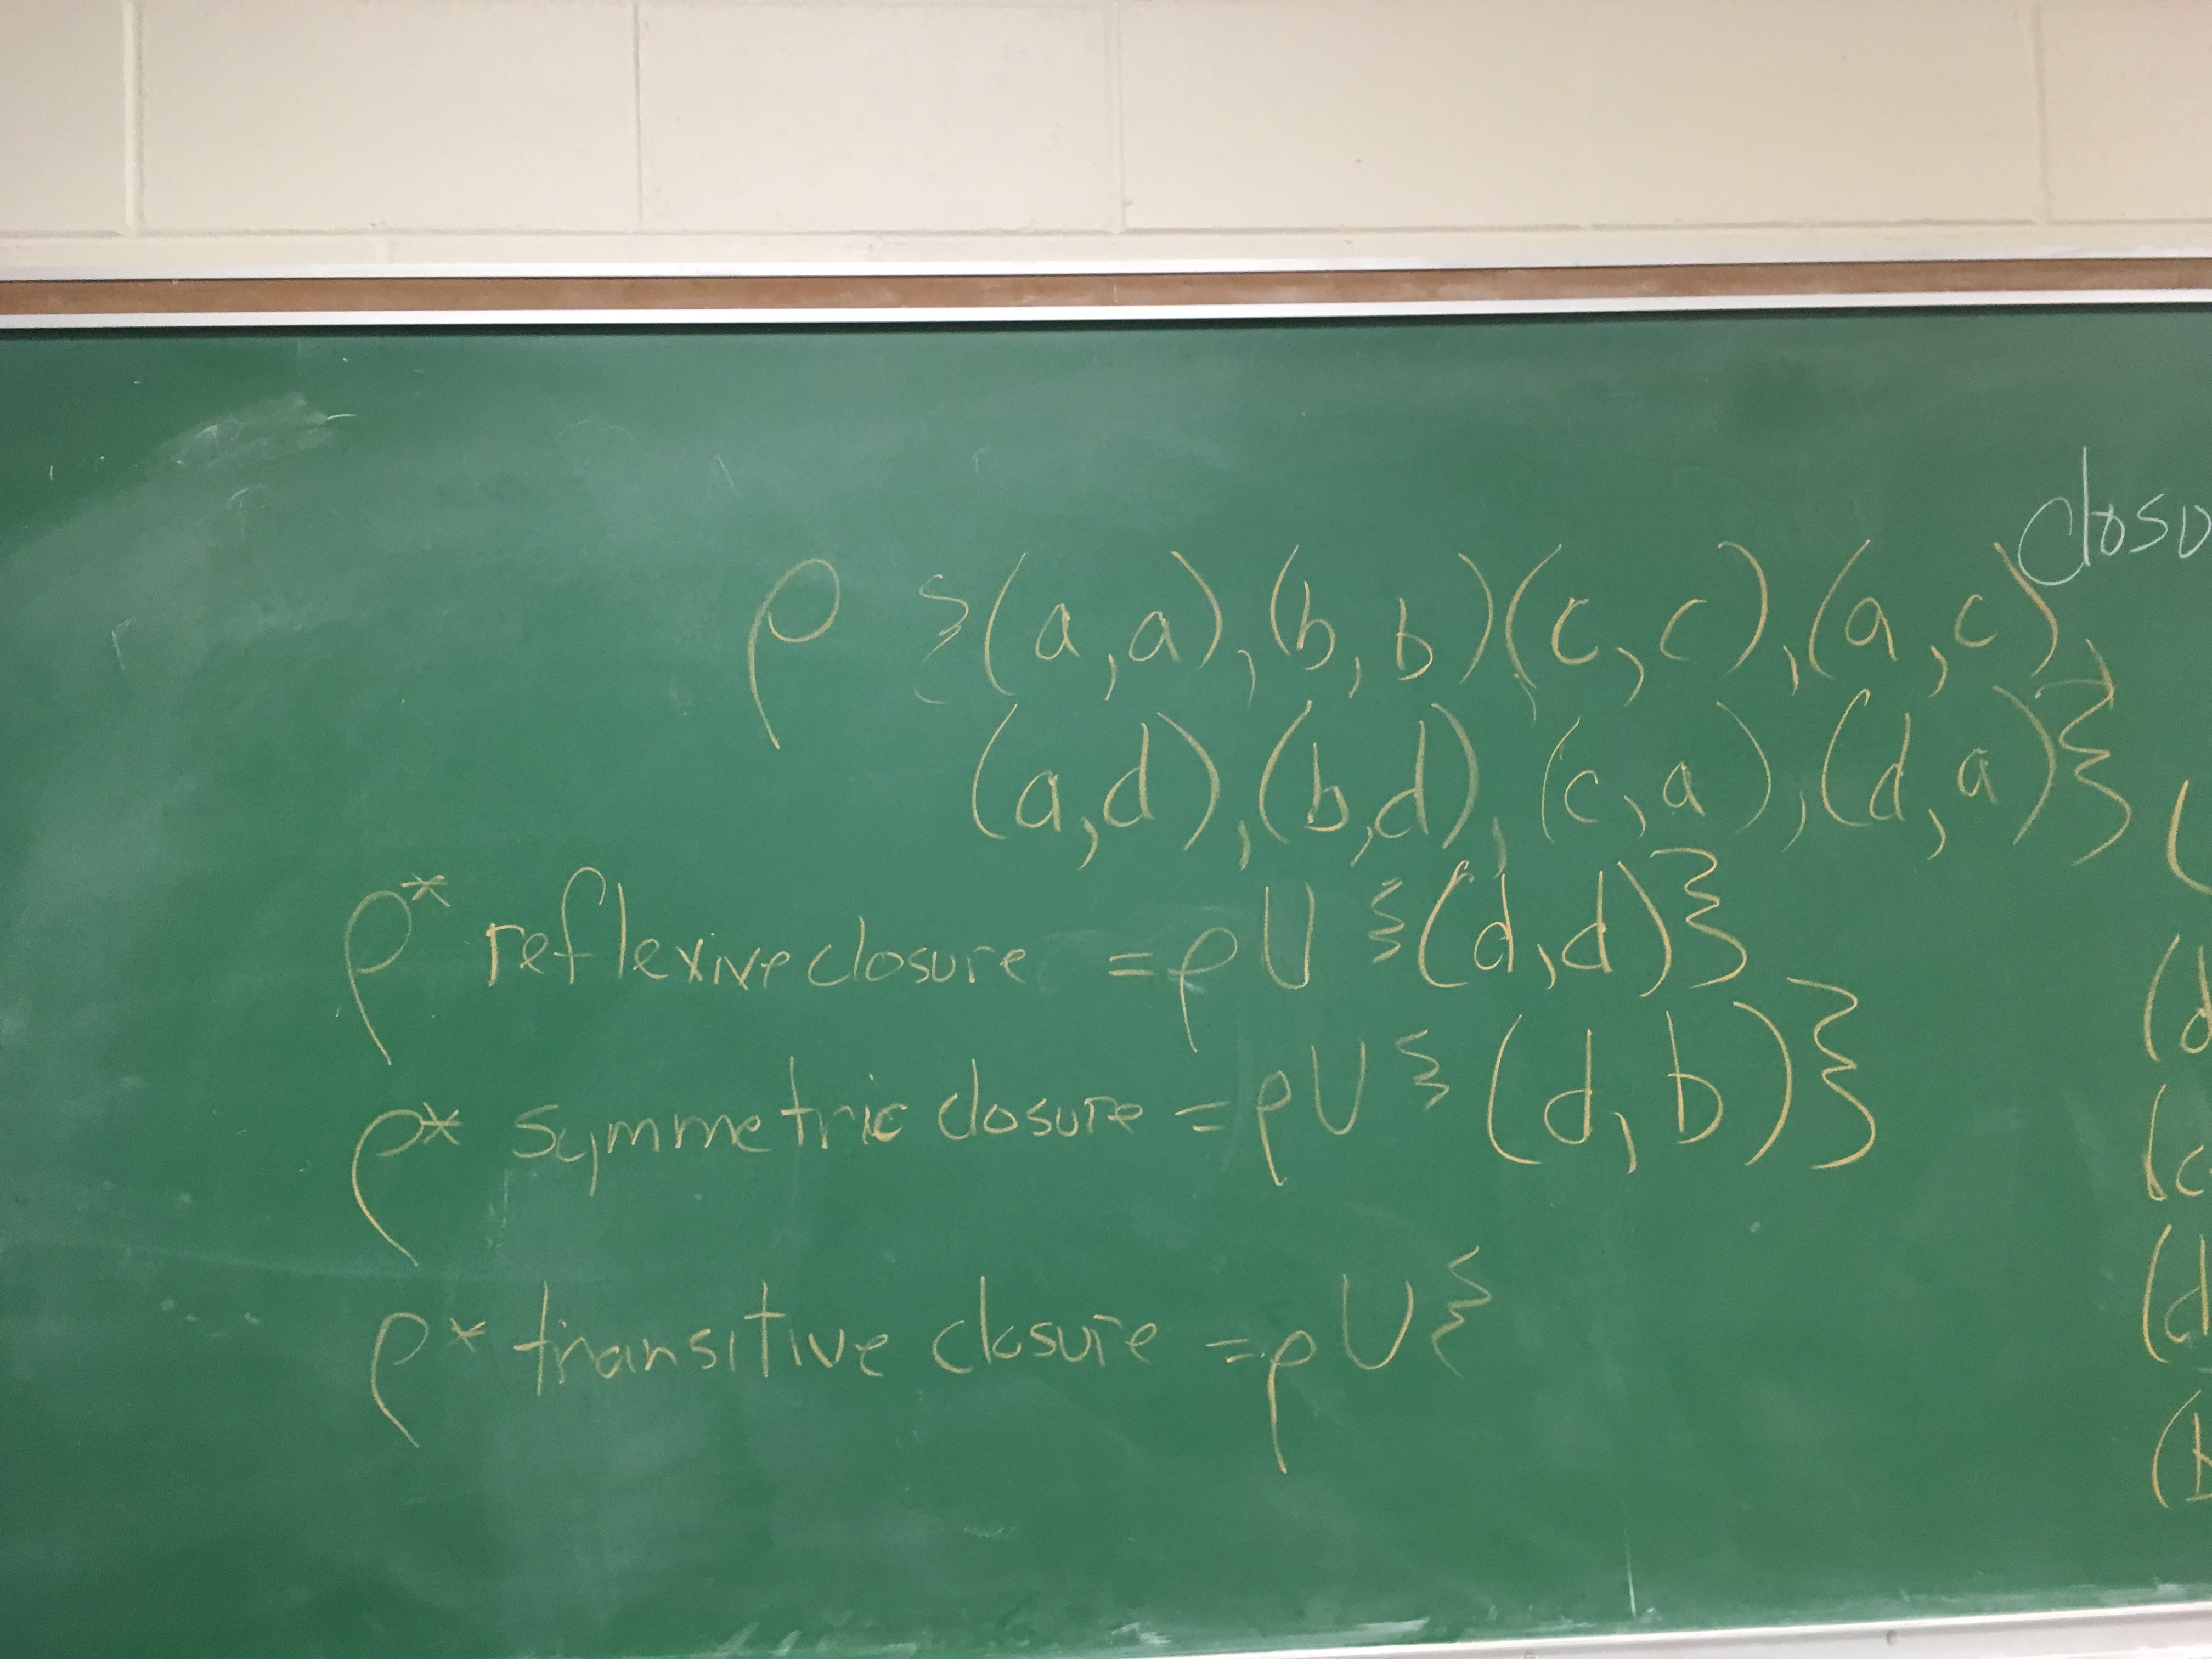 closu
ρ {(a,a),(b,b)(c,c),(a,c),
(a,d),(b,d),(c,a),(d,a)}
ρ* reflexive closure = ρ U {(d,d)}
ρ* symmetric closure = ρ U {(d,b)}
ρ* transitive closure = ρ U {
(
(d
(c
(d
(b